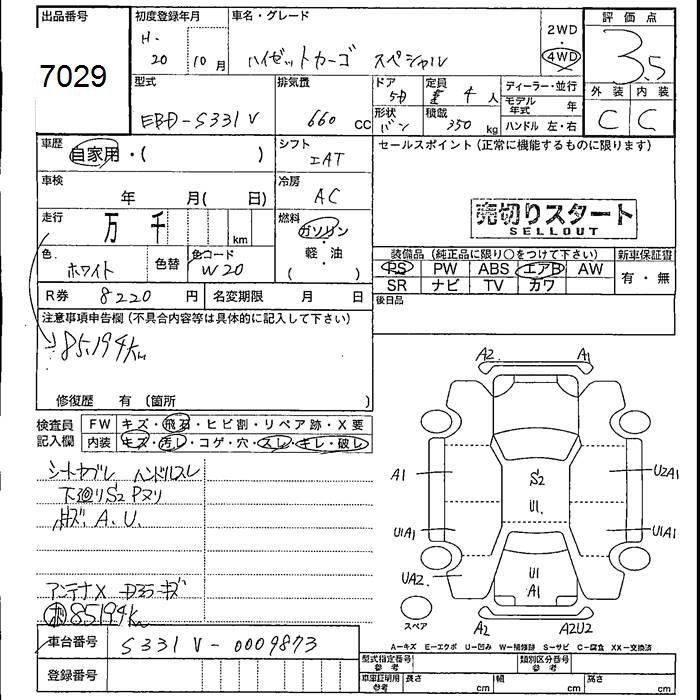 出品番号
7029
初度登録年月
H-
20 10月
車名・グレード
ハイゼットカーゴ スペシャル
2WD
・
4WD
評価点
3.5
外装 内装
C C
型式
EBD-S331V
排気量
660 cc
ドア
5D
形状
バン
定員
4人
積載
350 kg
ディーラー・並行
モデル年式 年
ハンドル 左・右
車歴
自家用・( )
シフト
AT
セールスポイント(正常に機能するものに限ります)
車検
年 月( 日)
冷房
AC
走行
万 千 km
燃料
ガソリン
・
軽・油
( )
売切りスタート
SELLOUT
色
ホワイト
色替
色コード
W20
装備品(純正品に限り○をつけて下さい)
PS PW ABS エアB AW
SR ナビ TV カワ
新車保証書
有・無
R券 8220円
名変期限 月 日
後日品
注意事項申告欄(不具合内容等は具体的に記入して下さい)
85,194km
修復歴 有(箇所 )
検査員
記入欄
FW キズ・飛石・ヒビ割・リペア跡・X要
内装 キズ・汚レ・コゲ・穴・スレ・キレ・破レ
シートヤブレ ハンドルスレ
下廻りS2 Pヌリ
キズ A.U.
アンテナX キズ
85194km
車台番号 S331V-0009873
登録番号
A2 A1
A1 S2 U2A1
U1
U1A1 U1A1
UA2 U1
A1
スペア
A2 A2U2
A-キズ E-エクボ U-凹み W-補修跡 S-サビ C-腐食 XX-交換済
型式指定番号
参考
類別区分番号
参考
車庫証明用
参考
長さ cm 幅 cm 高さ cm